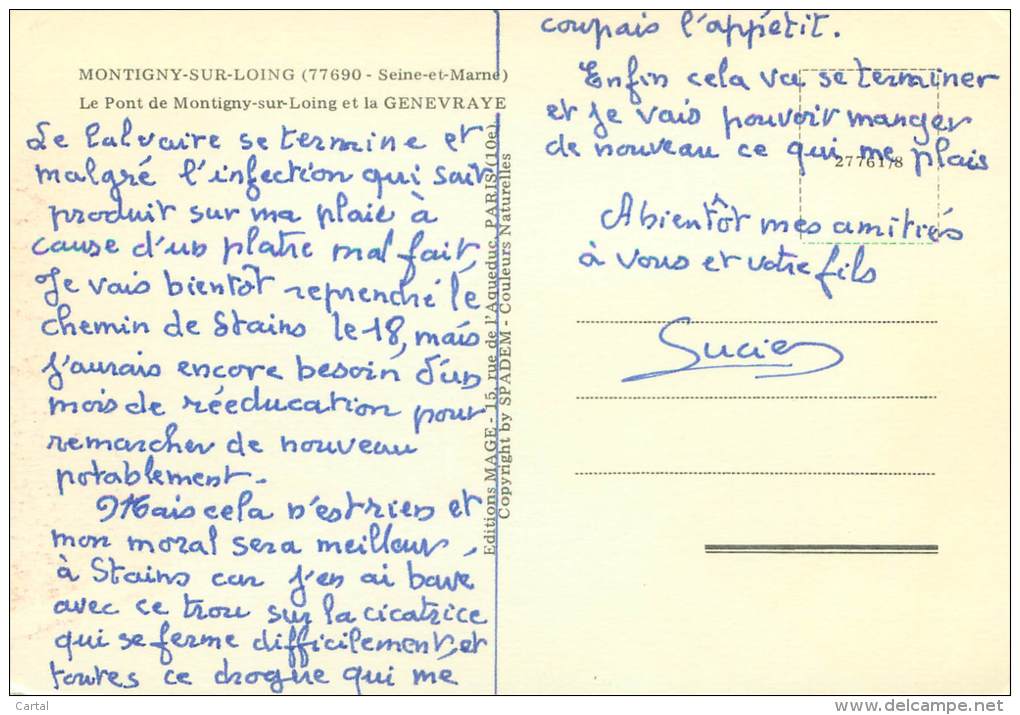 MONTIGNY-SUR-LOING (77690 - Seine-et-Marne)
Le Pont de Montigny-sur-Loing et la GENEVRAYE
Le Calvaire se termine et
malgré l'infection qui sait
produit sur ma plaie à
cause d'un platre mal fait,
Je vais bientôt reprendre le
chemin de Stains le 18, mais
j'aurais encore besoin d'un
mois de rééducation pour
remarcher de nouveau
potablement.
Mais cela n'est rien et
mon moral sera meilleur,
à Stains car j'en ai bave
avec ce trou sur la cicatrice
qui se ferme difficilement, et
toutes ce drogue qui me
coupais l'appétit.
Enfin cela va se terminer
et je vais pouvoir manger
de nouveau ce qui me plais
A bientôt mes amitiés
à vous et votre fils
Lucien
277617/8
Editions MAGE - 15, rue de l'Aqueduc, PARIS (10e)
Copyright by SPADEM - Couleurs Naturelles
Cartal
www.delcampe.net